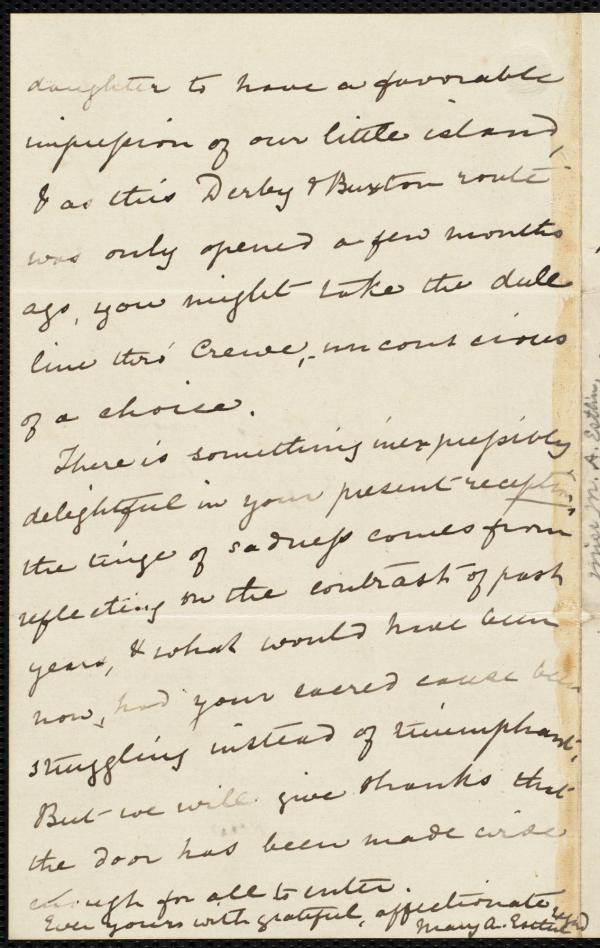 daughter to have a favorable
impression of our little island,
& as this Derby & Buxton route
was only opened a few months
ago, you might take the dull
line thro' Crewe, unconscious
of a choice.
There is something inexpressibly
delightful in your present reception,
the tinge of sadness comes from
reflecting on the contrast of past
years, & what would have been
now, had your sacred cause been
struggling instead of triumphant.
But we will give thanks that
the door has been made wide
enough for all to enter.
Ever yours with grateful, affectionate regard
Mary A. Estlin
Miss M. A. Estlin,